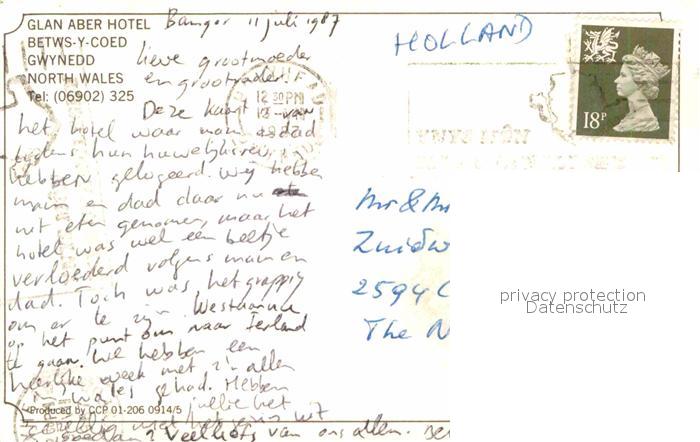 GLAN ABER HOTEL
BETWS-Y-COED
GWYNEDD
NORTH WALES
Tel: (06902) 325
Bangor 11 juli 1987
lieve grootmoeder
en grootvader!
Deze kaart is van
het hotel waar mam en dad
tijdens hun huwelijksreis
hebben gelogeerd. Wij hebben
mam en dad daar nu
uit eten genomen, maar het
hotel was wel een beetje
verloederd volgens mam en
dad. Toch was het grappig
om er te zijn. We staan nu
op het punt om naar Ierland
te gaan. We hebben een
heerlijke week met z'n allen
in Wales gehad. Hebben
jullie het
veel liefs van ons allen.
Produced by CCP 01-206 0914/5
HOLLAND
12 30 PM
18P
Mr & M
Zuidw
2594 C
The N
privacy protection
Datenschutz